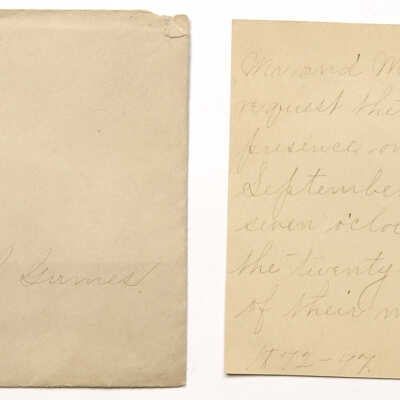 Girmes.
Mr. and M
request the
presence on
September
seven o'cloc
the twenty-
of their m
1872-97.